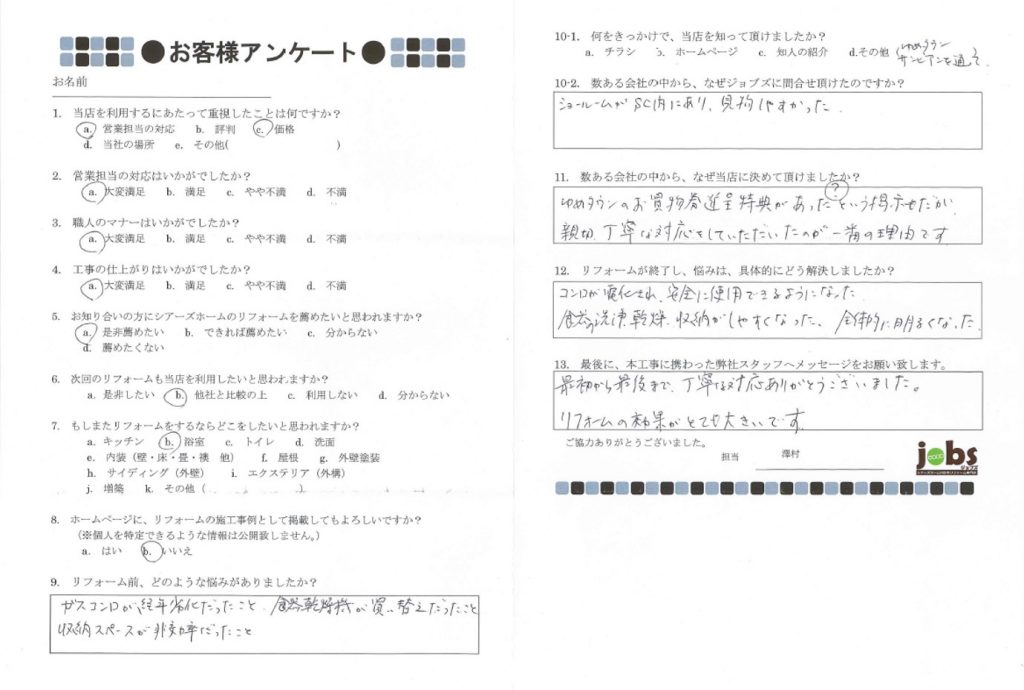 ●お客様アンケート●
お名前
1. 当店を利用するにあたって重視したことは何ですか？
a. 営業担当の対応 b. 評判 c. 価格
d. 当社の場所 e. その他( )
2. 営業担当の対応はいかがでしたか？
a. 大変満足 b. 満足 c. やや不満 d. 不満
3. 職人のマナーはいかがでしたか？
a. 大変満足 b. 満足 c. やや不満 d. 不満
4. 工事の仕上がりはいかがでしたか？
a. 大変満足 b. 満足 c. やや不満 d. 不満
5. お知り合いの方にシアーズホームのリフォームを薦めたいと思われますか？
a. 是非薦めたい b. できれば薦めたい c. 分からない
d. 薦めたくない
6. 次回のリフォームも当店を利用したいと思われますか？
a. 是非したい b. 他社と比較の上 c. 利用しない d. 分からない
7. もしまたリフォームをするならどこをしたいと思われますか？
a. キッチン b. 浴室 c. トイレ d. 洗面
e. 内装（壁・床・畳・襖 他） f. 屋根 g. 外壁塗装
h. サイディング（外壁） i. エクステリア（外構）
j. 増築 k. その他（ ）
8. ホームページに、リフォームの施工事例として掲載してもよろしいですか？
（※個人を特定できるような情報は公開致しません。）
a. はい b. いいえ
9. リフォーム前、どのような悩みがありましたか？
ガスコンロが経年劣化だったこと、食器乾燥機が買い替えだったこと
収納スペースが非効率だったこと
10-1. 何をきっかけで、当店を知って頂けましたか？
a. チラシ b. ホームページ c. 知人の紹介 d.その他（ゆめタウン
サンピアンを通って
10-2. 数ある会社の中から、なぜジョブズに問合せ頂けたのですか？
ショールームがSC内にあり、見物しやすかった。
11. 数ある会社の中から、なぜ当店に決めて頂けましたか？
ゆめタウンのお買物券進呈特典があった(?)という
親切、丁寧な対応をしていただいたのが一番の理由です
12. リフォームが終了し、悩みは、具体的にどう解決しましたか？
コンロが電化され、安全に使用できるようになった
食器の洗浄、乾燥、収納がしやすくなった、全体的に明るくなった.
13. 最後に、本工事に携わった弊社スタッフへメッセージをお願い致します。
最初から最後まで、丁寧な対応ありがとうございました。
リフォームの効果がとても大きいです.
ご協力ありがとうございました。
担当 澤村
jobs
ジョブズ